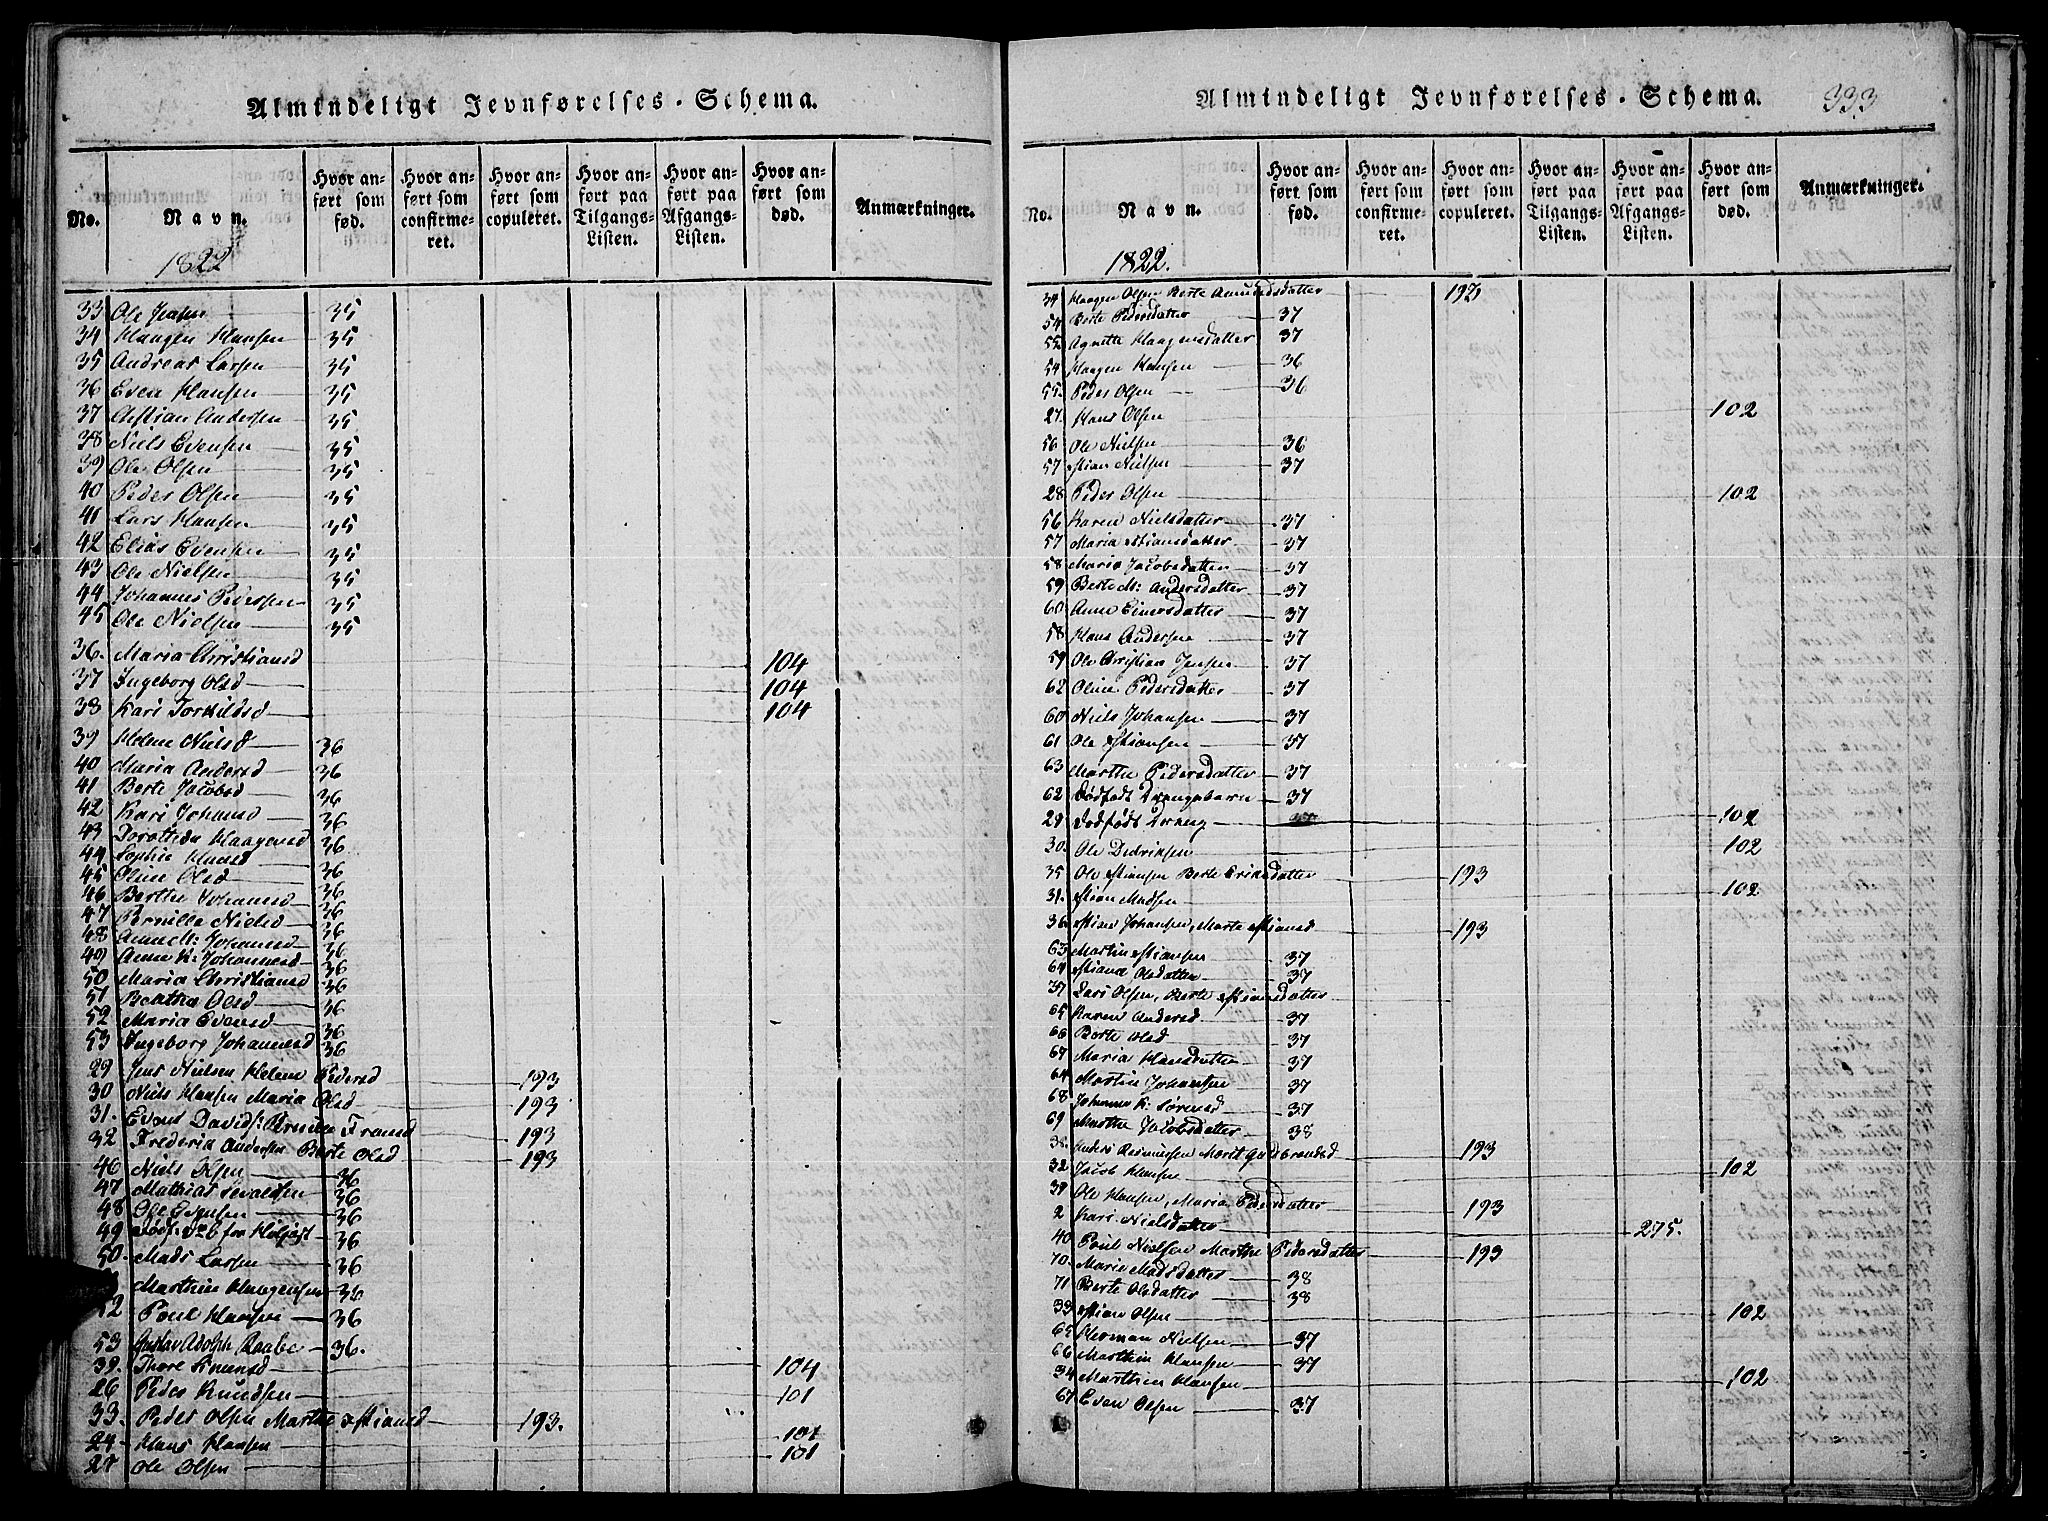 Almindeligt Jevnførelses-Schema.
No. Navn. Hvor anført som fød. Hvor anført som confirmeret. Hvor anført som copuleret. Hvor anført paa Tilgangs-Listen. Hvor anført paa Afgangs-Listen. Hvor anført som død. Anmærkninger.
1822
33 Ole Jensen 35
34 Haagen Hansen 35
35 Andreas Larsen 35
36 Even Hansen 35
37 Chstian Andersen 35
38 Niels Evensen 35
39 Ole Olsen 35
40 Peder Olsen 35
41 Lars Hansen 35
42 Elias Evensen 35
43 Ole Nielsen 35
44 Johannes Pedersen 35
45 Ole Nielsen 35
36. Maria Christiansd 104
37 Ingeborg Olsd 104
38 Kari Torkildsd 104
39 Helene Nielsd 36
40 Maria Andersd 36
41 Berte Jacobsd 36
42 Kari Johansd 36
43 Dorothea Haagensd 36
44 Sophie Hansd 36
45 Oline Olsd 36
46 Berthe Johansd 36
47 Pernille Nielsd 36
48 Anne M: Johansd 36
49 Anne K: Johannesd 36
50 Maria Christiansd 36
51 Beathe Olsd 36
52 Maria Evensd 36
53 Ingeborg Johannesd 36
29 Jens Nielsen Helene Pedersd 193
30 Niels Hansen Maria Olsd 193
31. Evens Davids: Pernille Fransd 193
32 Frederik Andersen Berte Olsd 193
46 Niels Olsen 36
47 Mathias 36
48 Ole Evensen 36
49 36
50. Mads Larsen 36
Marthin Haagensen 36
52 Poul Hansen 36
53 Gustav Adolph Raabe 36.
39. Thore Knudsd 104
26 Peder Knudsen 101
33. Peder Olsen Marthe xstiansd 193.
24 Hans Hansen 101
27 Ole Olsen 101
Almindeligt Jevnførelses-Schema. 333
No. Navn. Hvor anført som fød. Hvor anført som confirmeret. Hvor anført som copuleret. Hvor anført paa Tilgangs-Listen. Hvor anført paa Afgangs-Listen. Hvor anført som død. Anmærkninger.
1822.
34 Haagen Olsen Berte Amundsdatter 193
54 Berte Pedersdatter 37
55. Agnethe Haagensdatter 37
54 Haagen Hansen 36
55. Peder Olsen 36
27. Hans Olsen 102
56 Ole Nielsen 36
57 xstian Nielsen 37
28 Peder Olsen 102
56 Karen Nielsdatter 37
57 Maria xstiansdatter 37
58 Maria Jacobsdatter 37
59 Berte M: Andersdatter 37
60 Anne Einersdatter 37
58 Hans Andersen 37
59 Ole Christian Jensen 37
62 Oline Pedersdatter 37
60 Niels Johansen 37
61 Ole xstiansen 37
63 Marthe Pedersdatter 37
62 Dødfødt Drengebarn 37
29 Dødfødt Dreng 102
30. Ole Dedriksen 102
35 Ole xstiansen Berte Eriksdatter 193
31. xstian Madsen 102
36 xstian Johansen, Marte xstiansd 193
63 Martin xstiansen 37
64 xstiane Olsdatter 37
37 Lars Olsen, Berte xstiansdatter
65 Karen Andersd 37
66 Berte Olsd 37
67 Maria Hansdatter 37
64 Martin Johansen 37
68 Johanne K: Sørensd 37
69 Marthe Jacobsdatter 38
38. Anders Rasmussen Marit Guldbrandsd 193
32 Jacob Hansen 102
39 Ole Hansen, Maria Pedersdatter 193
2 Kari Nielsdatter 275.
40 Poul Nielsen Marthe Pedersdatter 193
70. Marie Madsdatter 38
71 Berte Olsdatter 38
33 xstian Olsen 102
65 Herman Nielsen 37
66 Marthin Hansen 37
34 Marthin Hansen 102
67 Even Olsen 37